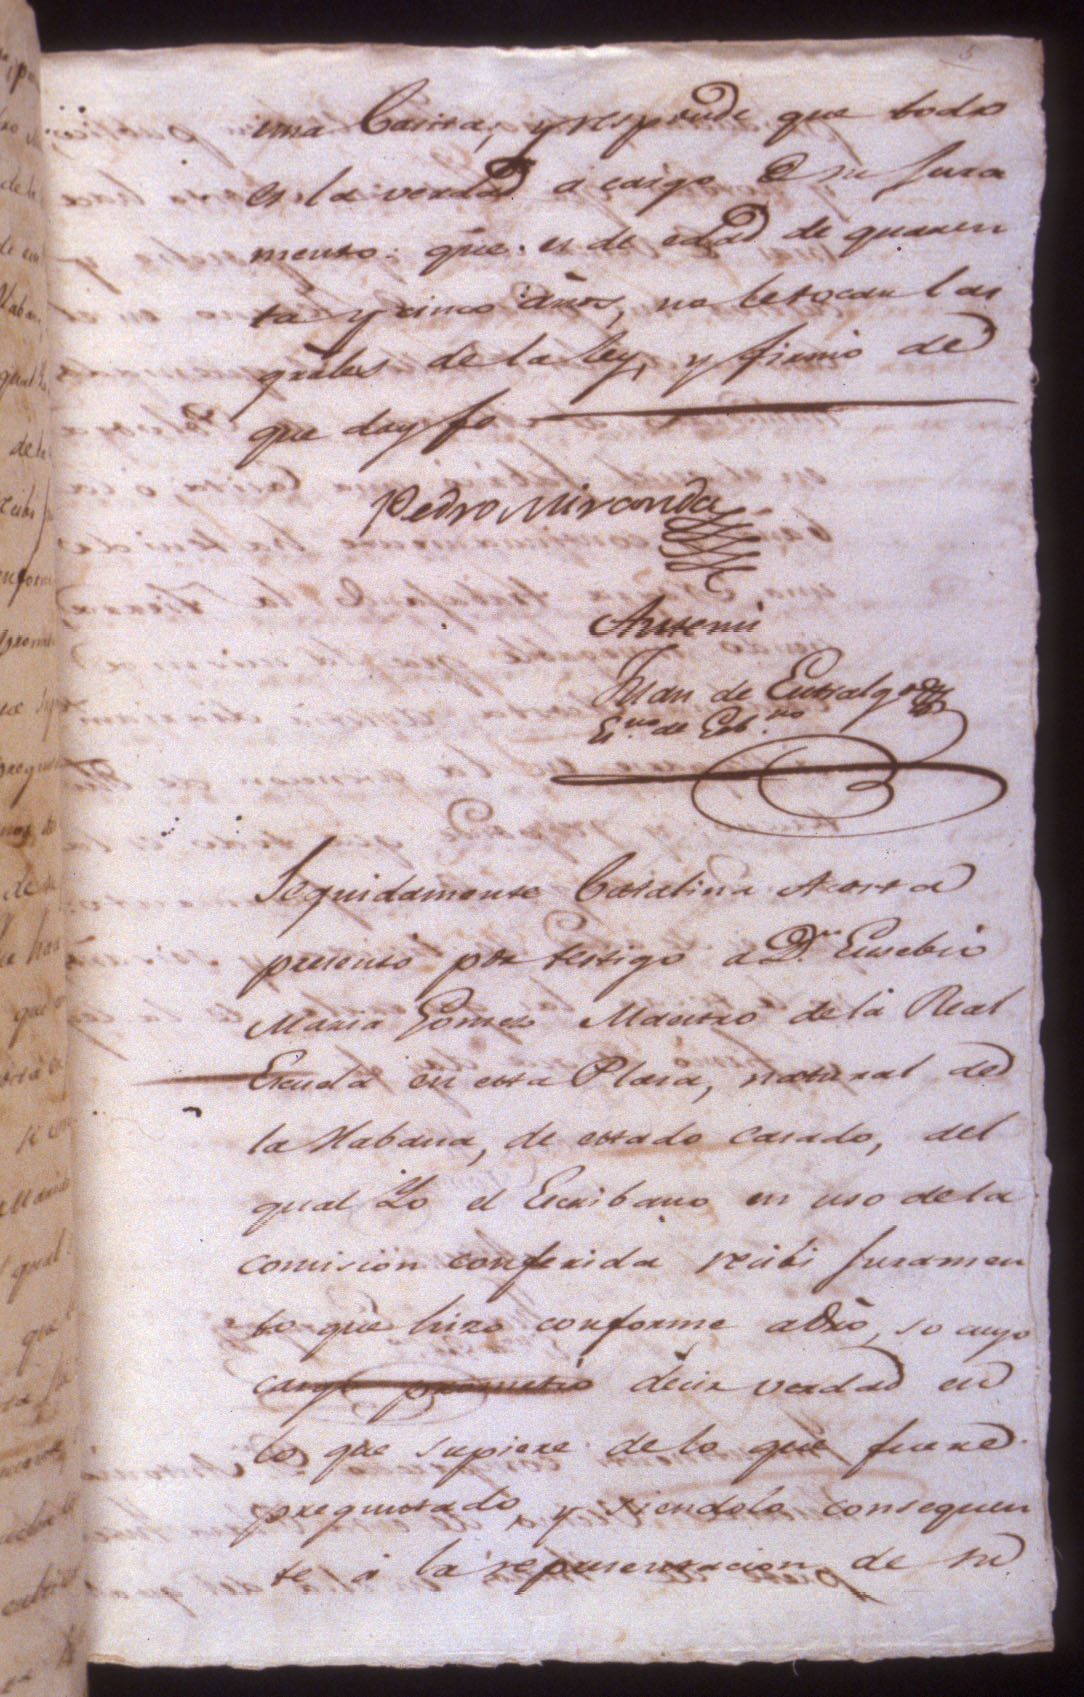 5
una Casita, y responde que todo
es la verdad a cargo de su Jura
mento: que es de edad de quaren
ta y cinco años, no le tocan las
grales de la ley, y firmó de
que doy fe
Pedro Miranda
Antemi
Juan de Entralgo
Es.no de Gob.no
Seguidamente Catalina Acosta
presentó por testigo a D.n Eusebio
Maria Gomez Maestro de la Real
Escuela en esta Plaza, natural de
la Habana, de estado casado, del
qual Yo el Escribano en uso de la
comision conferida recibi Juramen
to que hizo conforme a dro, so cuyo
cargo prometió decir verdad en
lo que supiere de lo que fuere
preguntado, y siendolo consequen
te á la representacion de su